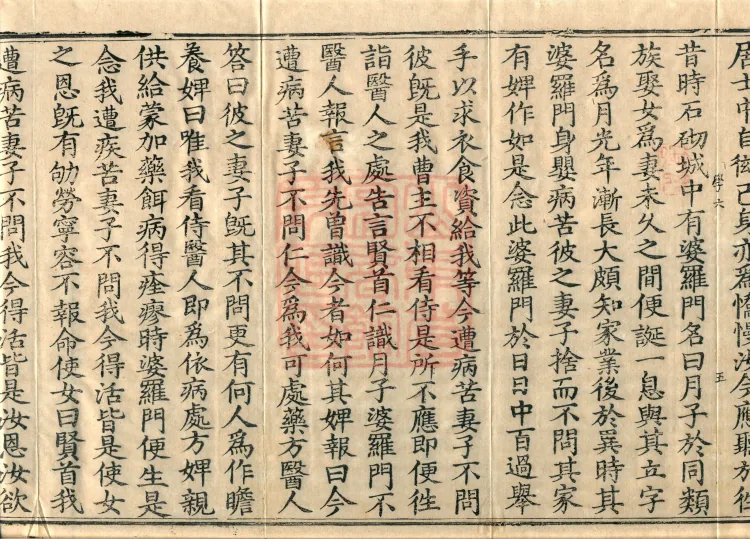 居士中自從己身亦爲懈慢汝今應聽於往
學六
五
昔時石砌城中有婆羅門名曰月子於同類
族娶女爲妻未久之間便誕一息與其立字
名爲月光年漸長大頗知家業後於異時其
婆羅門身嬰病苦彼之妻子捨而不問其家
有婢作如是念此婆羅門於日日中百過舉
手以求衣食資給我等今遭病苦妻子不問
彼旣是我曹主不相看侍是所不應即便徃
詣醫人之處告言賢首仁識月子婆羅門不
醫人報言我先曾識今者如何其婢報曰今
遭病苦妻子不問仁今爲我可處藥方醫人
答曰彼之妻子旣其不問更有何人爲作瞻
養婢曰唯我看侍醫人即爲依病處方婢親
供給蒙加藥餌病得痊瘳時婆羅門便生是
念我遭疾苦妻子不問我今得活皆是使女
之恩旣有劬勞寧容不報命使女曰賢首我
遭病苦妻子不問我今得活皆是汝恩汝欲